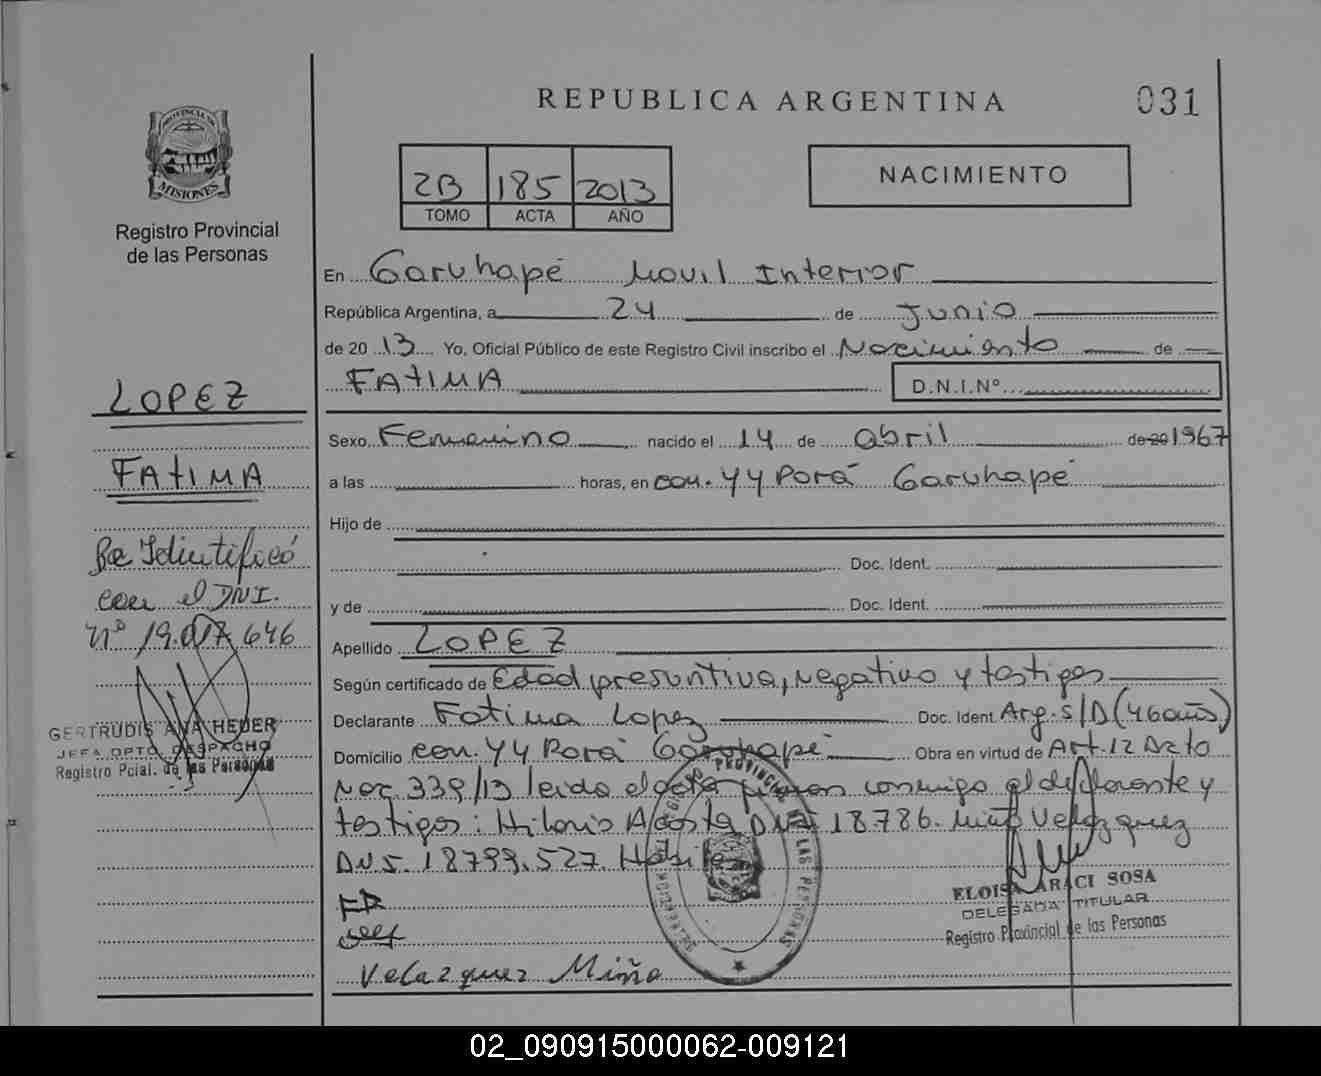 REPUBLICA ARGENTINA
031
PROVINCIA DE
MISIONES
Registro Provincial
de las Personas
2B 185 2013
TOMO ACTA AÑO
NACIMIENTO
En Garuhapé Movil Interior
República Argentina, a 24 de Junio
de 20 13 Yo, Oficial Público de este Registro Civil inscribo el Nacimiento de
FATIMA D.N.I.Nº
LOPEZ
FATIMA
Se Identificó
con el DNI.
Nº 19.017.646
GERTRUDIS ANA HEDER
JEFA DPTO. DESPACHO
Registro Pcial. de las Personas
Sexo Femenino nacido el 14 de abril de 20 1967
a las horas, en con. Yy Porá Garuhapé
Hijo de
Doc. Ident.
y de Doc. Ident.
Apellido LOPEZ
Según certificado de Edad presuntiva, negativo y testigos
Declarante Fatima Lopez Doc. Ident. Arg. S/D (46 años)
Domicilio con. Yy Porá Garuhapé Obra en virtud de Art. 12 Dcto
Nac. 339/13 leida el acta firman conmigo el declarante y
testigos: Hilario Acosta DNI 18.786. Miño Velazquez
DNI. 18799.527. Habiles
FR
Velazquez Miño
ELOISA ARACI SOSA
DELEGADA TITULAR
Registro Provincial de las Personas
02_090915000062-009121